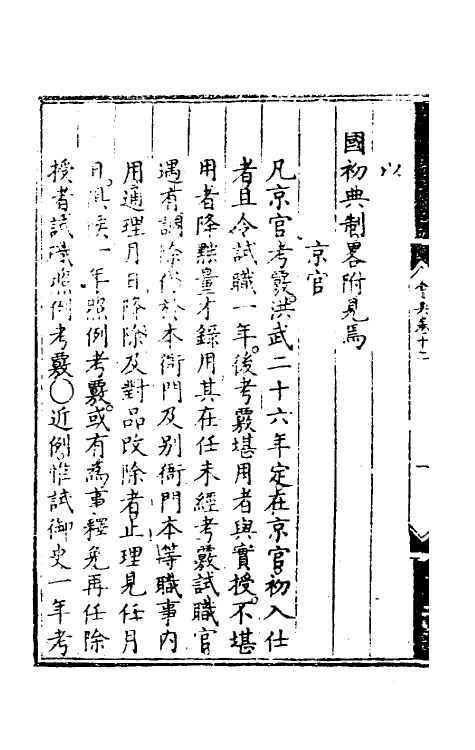 以
國初典制畧附見焉
京官
凡京官考覈洪武二十六年定在京官初入仕
者且令試職一年後考覈堪用者與實授不堪
用者降黜量才錄用其在任未經考覈試職官
遇有調除仍於本衙門及別衙門本等職事內
用通理月日降除及對品改除者止理見任月
日俱候一年照例考覈或有為事釋免再任除
授者試職照例考覈○近例惟試御史一年考
會典卷十二
一